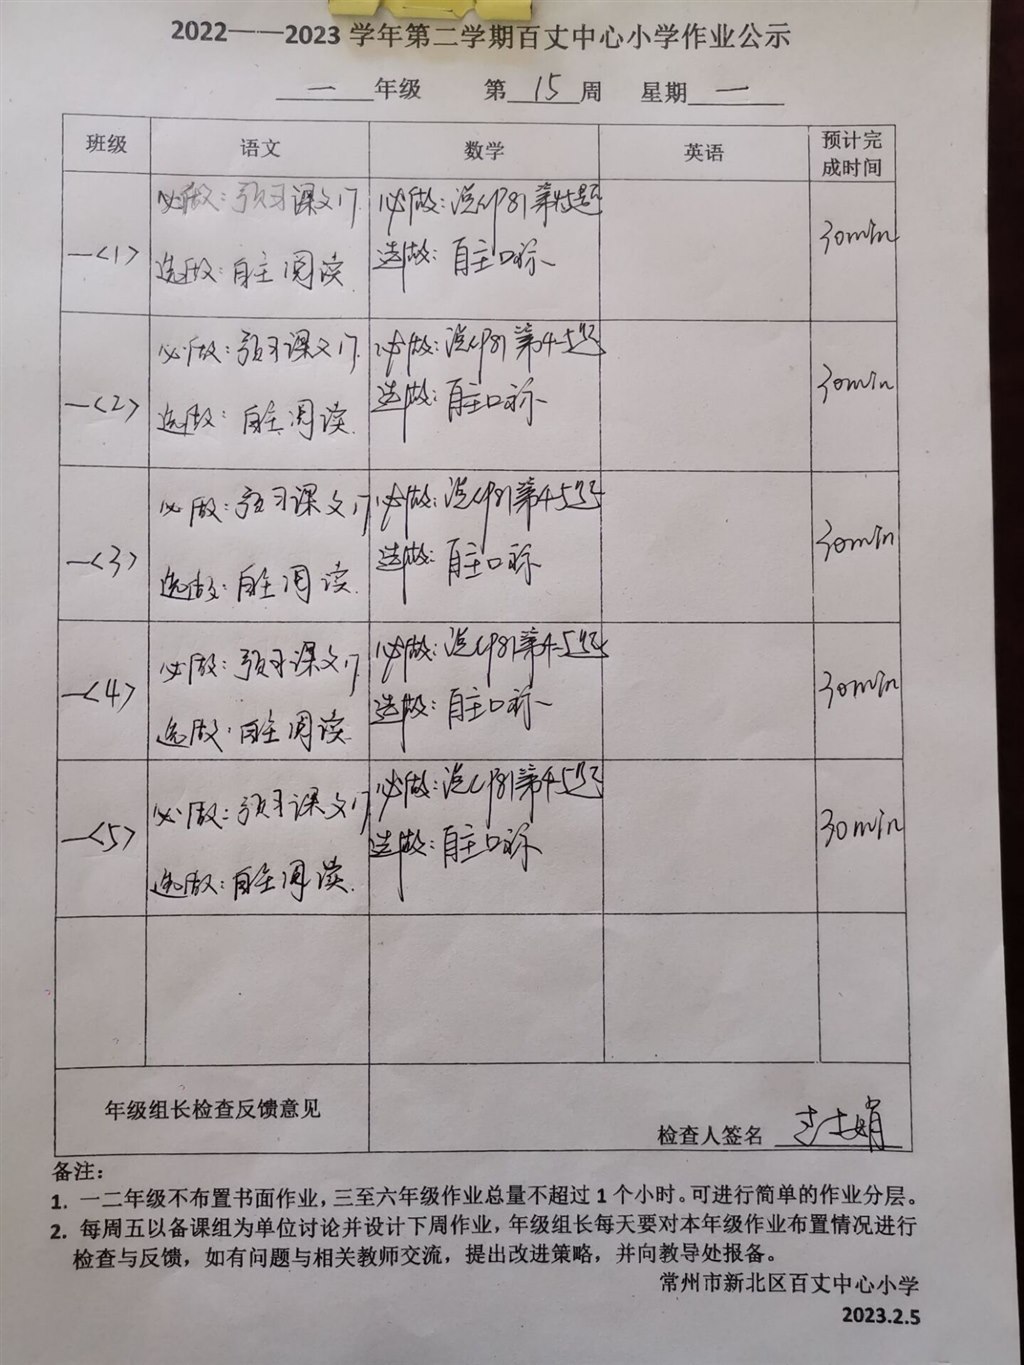 2022——2023 学年第二学期百丈中心小学作业公示
一 年级 第 15 周 星期 一
班级 语文 数学 英语 预计完成时间
一<1> 必做：预习课文17. 必做：说说P81第4-5题 30min
选做：自主阅读 选做：自主口称
一<2> 必做：预习课文17. 必做：说说P81第4-5题 30min
选做：自主阅读. 选做：自主口称
一<3> 必做：预习课文17 必做：说说P81第4-5题 30min
选做：自主阅读. 选做：自主口称
一<4> 必做：预习课文17 必做：说说P81第4-5题 30min
选做：自主阅读. 选做：自主口称
一<5> 必做：预习课文17 必做：说说P81第4-5题 30min
选做：自主阅读. 选做：自主口称
年级组长检查反馈意见
检查人签名
备注：
1. 一二年级不布置书面作业，三至六年级作业总量不超过 1 个小时。可进行简单的作业分层。
2. 每周五以备课组为单位讨论并设计下周作业，年级组长每天要对本年级作业布置情况进行
检查与反馈，如有问题与相关教师交流，提出改进策略，并向教导处报备。
常州市新北区百丈中心小学
2023.2.5